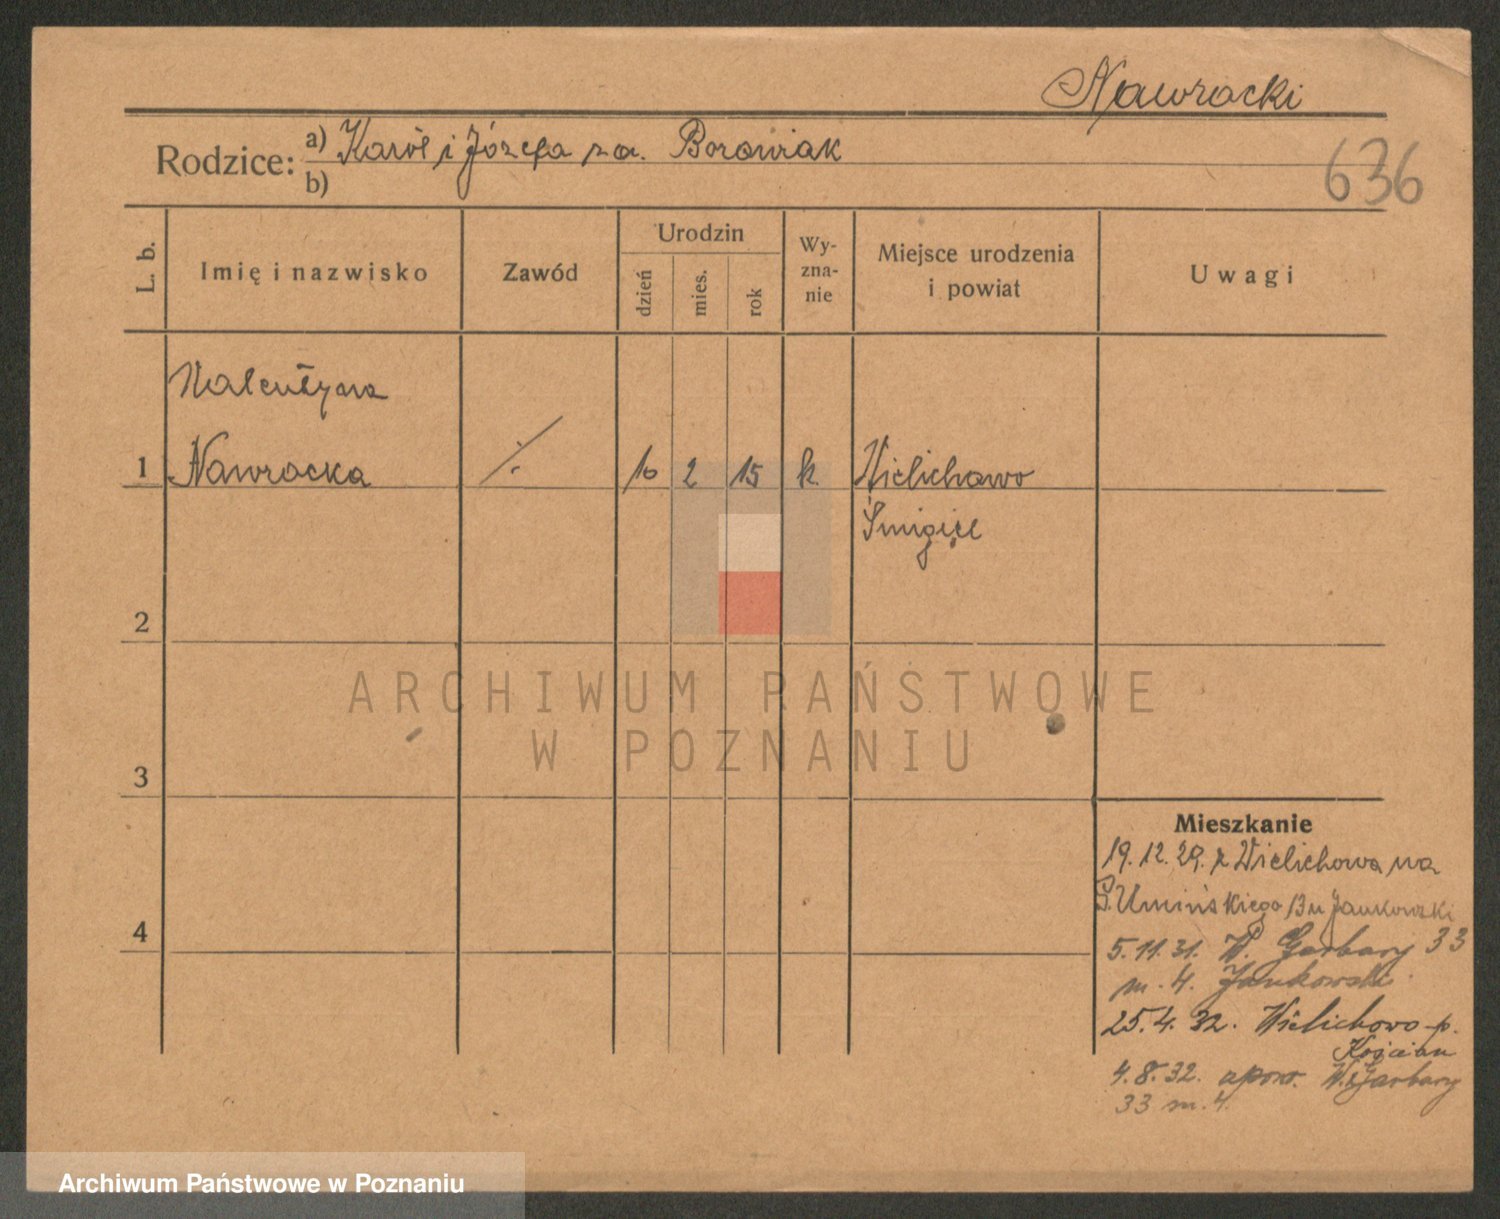 Nawrocki
Rodzice: a) Karol i Józefa za. Borowiak
b)
636
L. b. Imię i nazwisko Zawód Urodzin dzień mies. rok Wy-zna-nie Miejsce urodzenia i powiat Uwagi
Walentyna
1 Nawrocka ·/. 10 2 15 k. Wielichowo
Śmigiel
2
ARCHIWUM PAŃSTWOWE
W POZNANIU
3
Mieszkanie
19.12.29. z Wielichowa na
Umińskiego 13 u Jankowski
4
5.11.31. W. Garbary 33
m. 4. Jankowski
25.4.32. Wielichowo p.
Kościan
4.8.32. W. Garbary
33 m. 4.
Archiwum Państwowe w Poznaniu